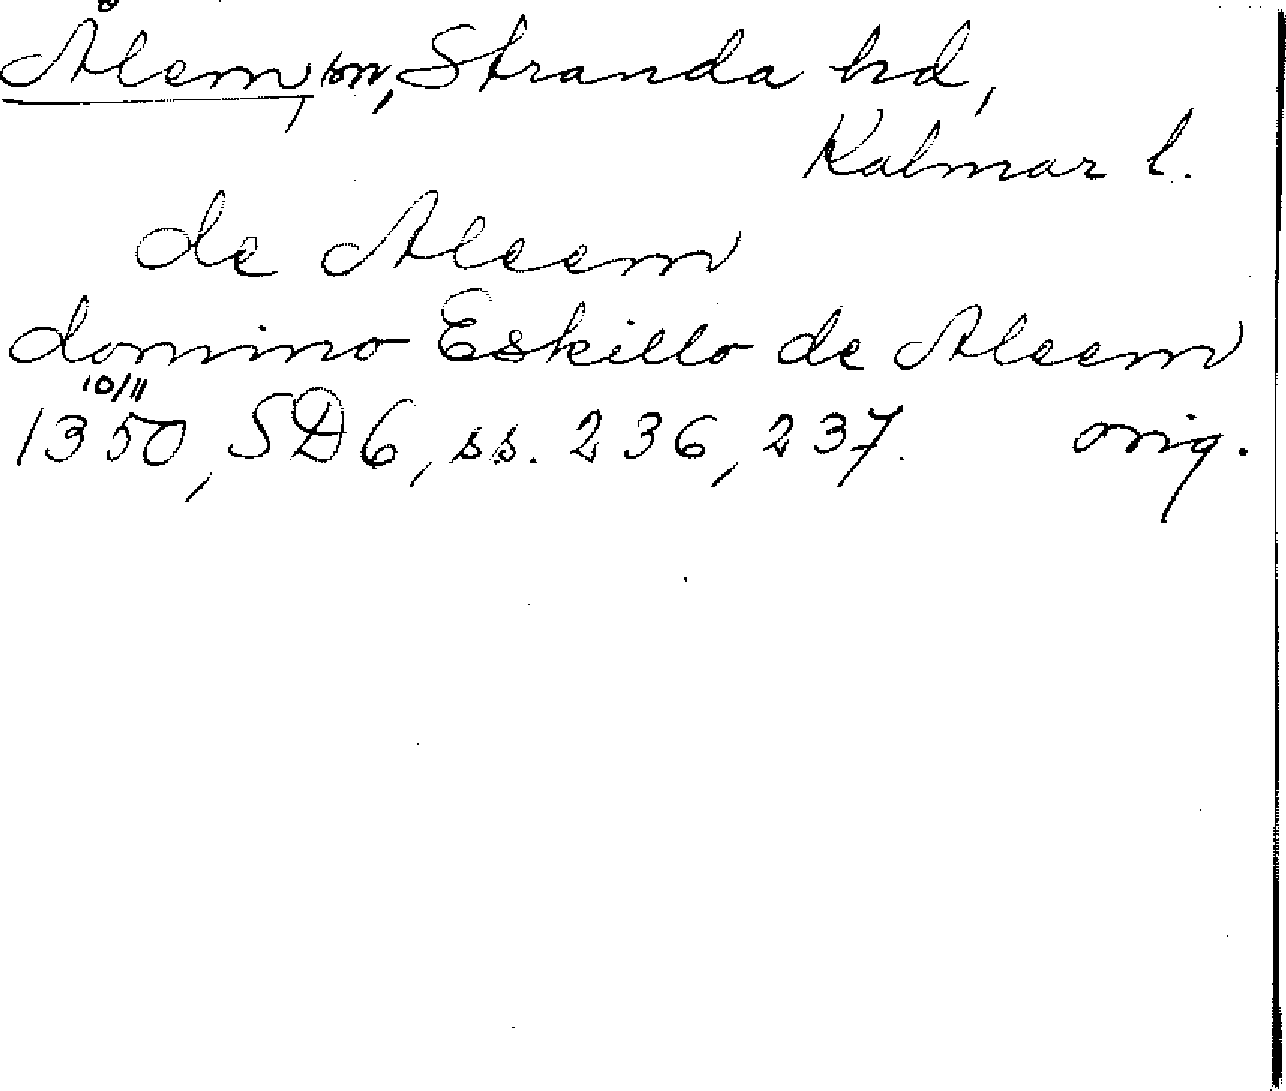 Ålem, sn, Stranda hd,
Kalmar l.
de Aleem
domino Eskillo de Aleem
10/11
1350, SD6, ss. 236, 237. orig.